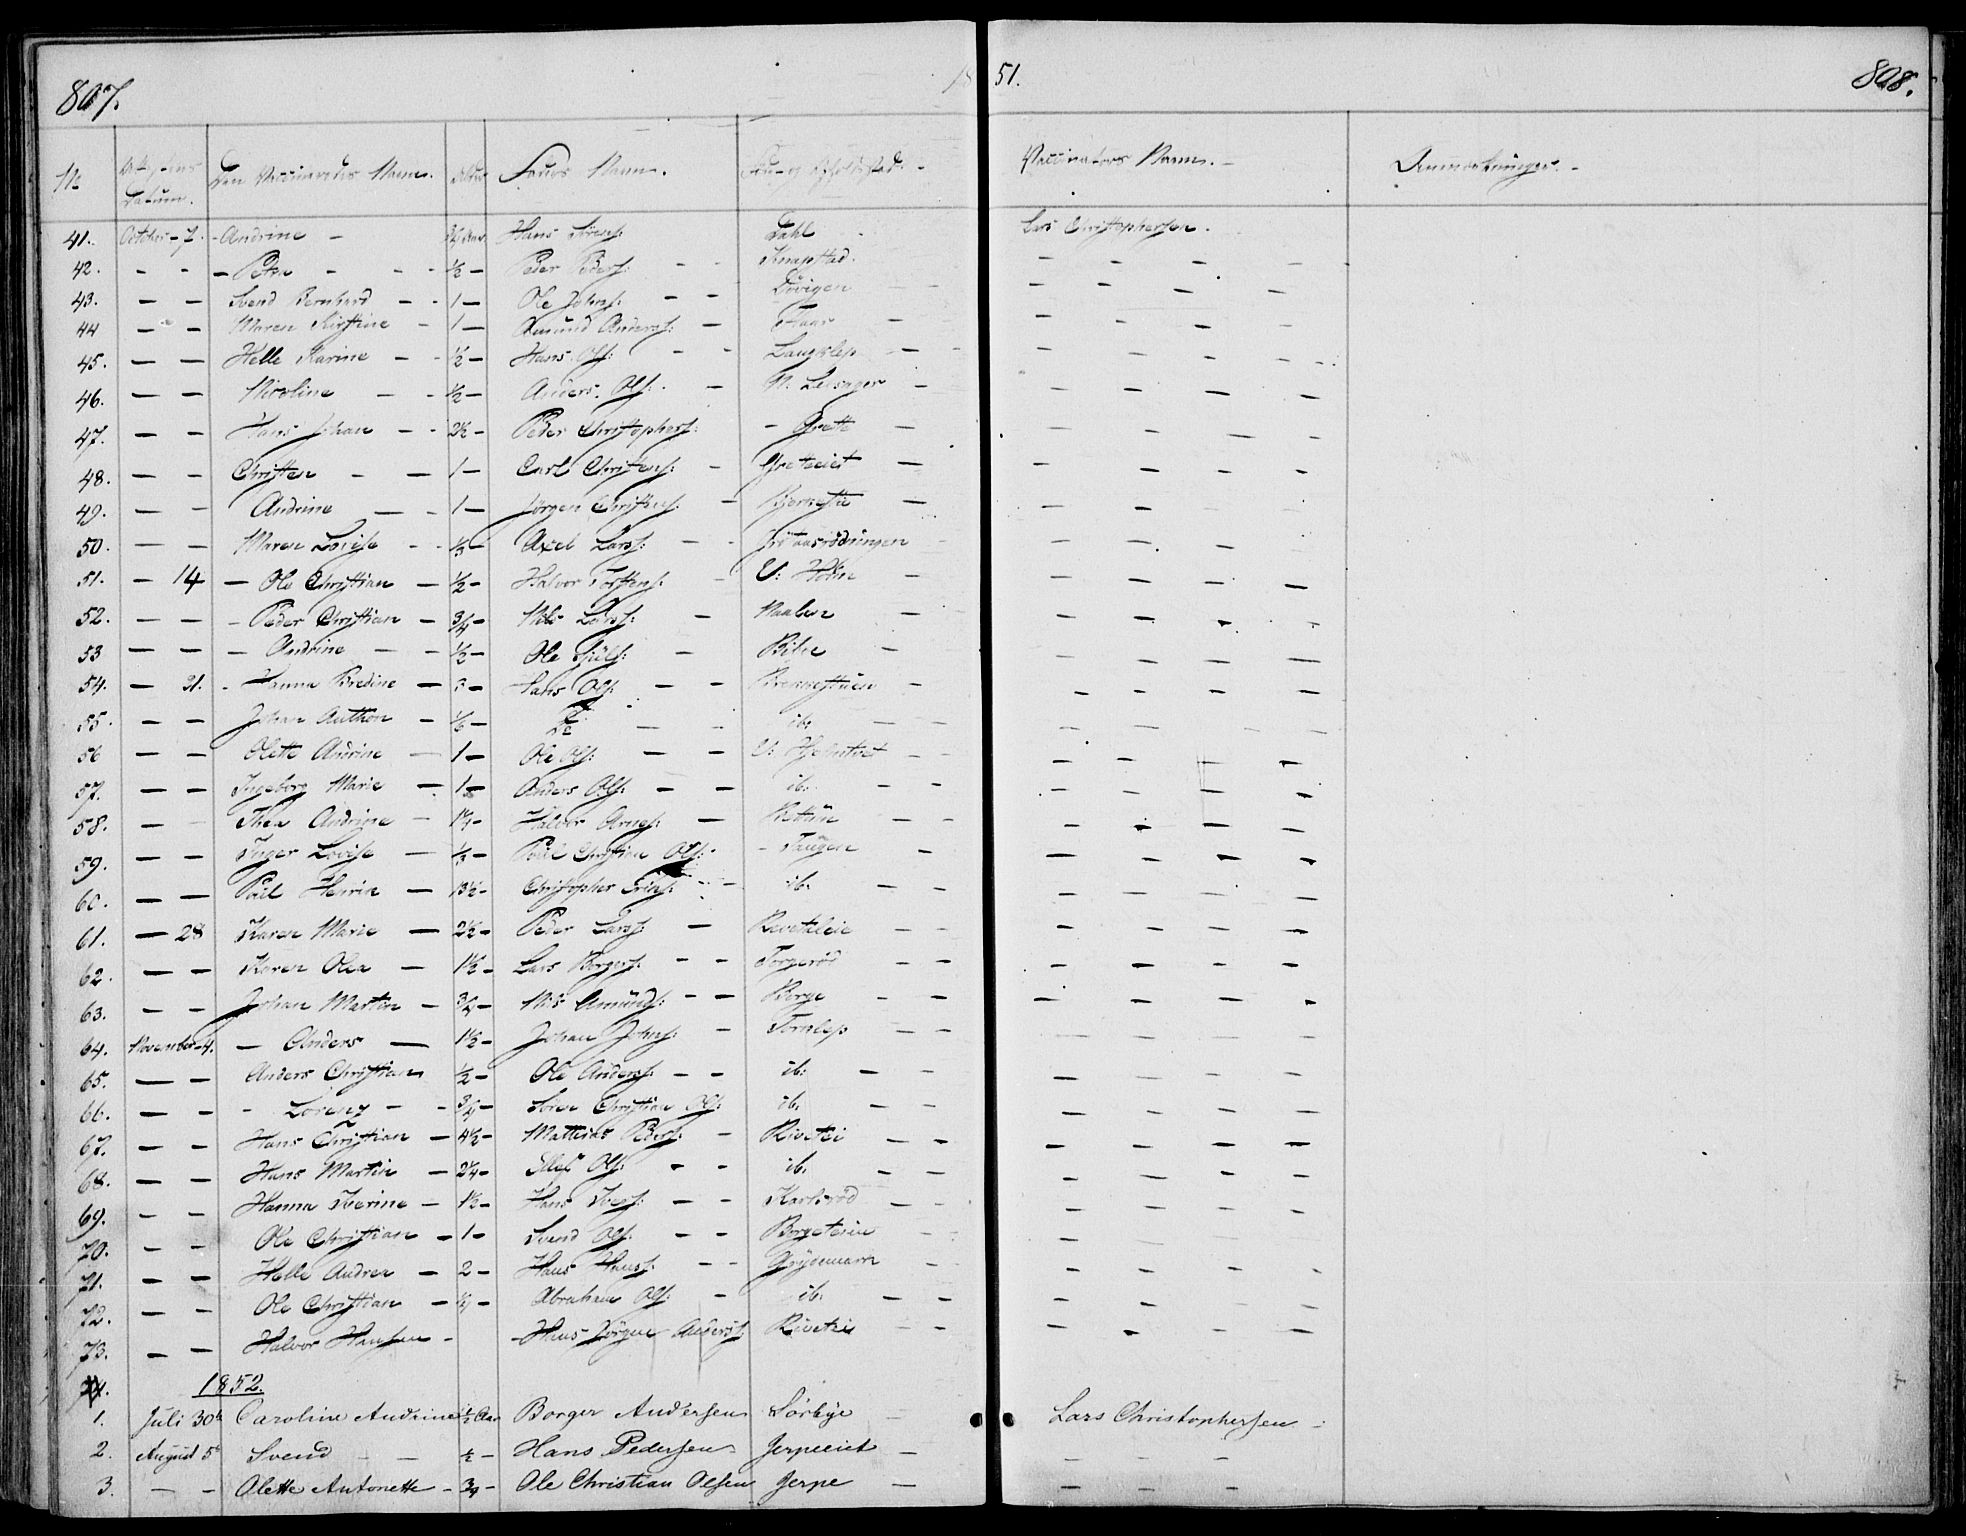 807. 18
51. 808.
No Datum. Den Vaccineredes Navn. Alder Faders Navn.
Vaccinators Navn. - Anmærkninger. -
41. October - 7. - Andrine - 3/4 Aar Hans Sörens: Dahl - Lars Christophersen.
42. - - - Petra - - - 1/2 - Peder Peders: - - Knapstad.
43. - - Svend Bernhard - - 1 - Ole Johns: - - Dövigen - -
44 - - Maren Kirstine - 1 - Amund Anders: - Haar -
45. - - Helle Karine - - 1/2 - Hans Ols: - - Langklep - -
46. - - Nicoline - - 1/2 - Anders Ols: - N. -
47. - - Hans Johan - - 2 1/2 - Peder Christophers: - Grette -
48. - - Christen - - 1 - Carl Christens: - Gretteeiet -
49. - - Andrine - - 1 - Jörgen Christens: -
50. - - Maren Lovise - - 1/3 - Axel Lars: - -
51. - 14 - Ole Christian - 1/2 - Halvor Torstens: -
52. - - - Peder Christian - 3/4 - Nils Lars: - Naalen -
53 - - - Andrine - - 1/2 - Ole - -
54. - 21. - Hanna Bredine - 3 - Hans Ols: - - Brennestuen -
55. - - Johan Anthon - 1/6 - Do - - ib: - -
56 - - Olette Andrine - 1 - Ole Ols: - - - -
57. - - Ingeborg Marie - 1 - Anders Ols: - - ib: - -
58. - - Thea Andrine - 1 1/4 - Halvor Arnes: - - -
59. - - Inger Lovise - 1/3 - Poul Christian Ols: - - Taugen -
60. - - Poul Henrik - 13 1/2 - Christopher Eriks: - - ib: - -
61. - 28 Karen Marie - 2 1/2 - Peder Lars: - - -
62. - - Karen Olea - 1 1/2 - Lars Borgers: - - Torgeröd - -
63. - - Johan Martin - 3/4 - Nils Amunds: - - Borge - -
64. November - 4. - Anders - 1 1/2 - Johan Johns: - Tornlep - -
65. - - Anders Christian 1/2 - Ole Anders: - - ib: - -
66. - - - Lorenz - - 3/4 - Sören Christian Ols: ib: - -
67. - - Hans Christian - 4 1/2 - Mathias Peders: - Rivetei - -
68. - - Hans Martin - 2 1/4 - Ellef Ols: - - ib: - -
69. - - Hanna Iverine - 1 1/2 - Hans Ivers: - - Karlsröd - -
70. - - Ole Christian - 1 - Svend Ols: - - Borgeteien - -
71. - - Helle Andrea - 2 - Hans Hans: - - Grydemark - -
72. - - Ole Christian - 1/4 - Abraham Ols: - ib: - -
73. - - Halvor Hansen - - Hans Jörgen Anders: Rivetei - -
74. 1852.
1. Juli 30te Caroline Andrine 1/2 Aar Borger Andersen Sörbye - Lars Christophersen -
2. August 5te Svend - - 1/2 - Hans Pedersen Jerpeeiet -
3. - - Olette Antonette - 3/4 Ole Christian Olsen Jerpe -